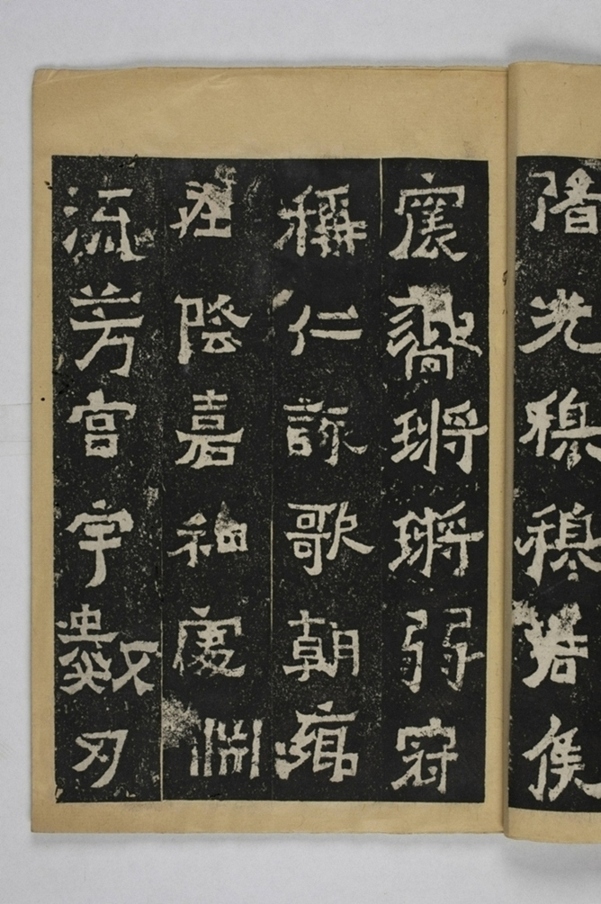 降光穆穆君侯
震響鏘鏘弱冠
稱仁詠歌朝鄉
在陰嘉和處淵
流芳宮宇數刃